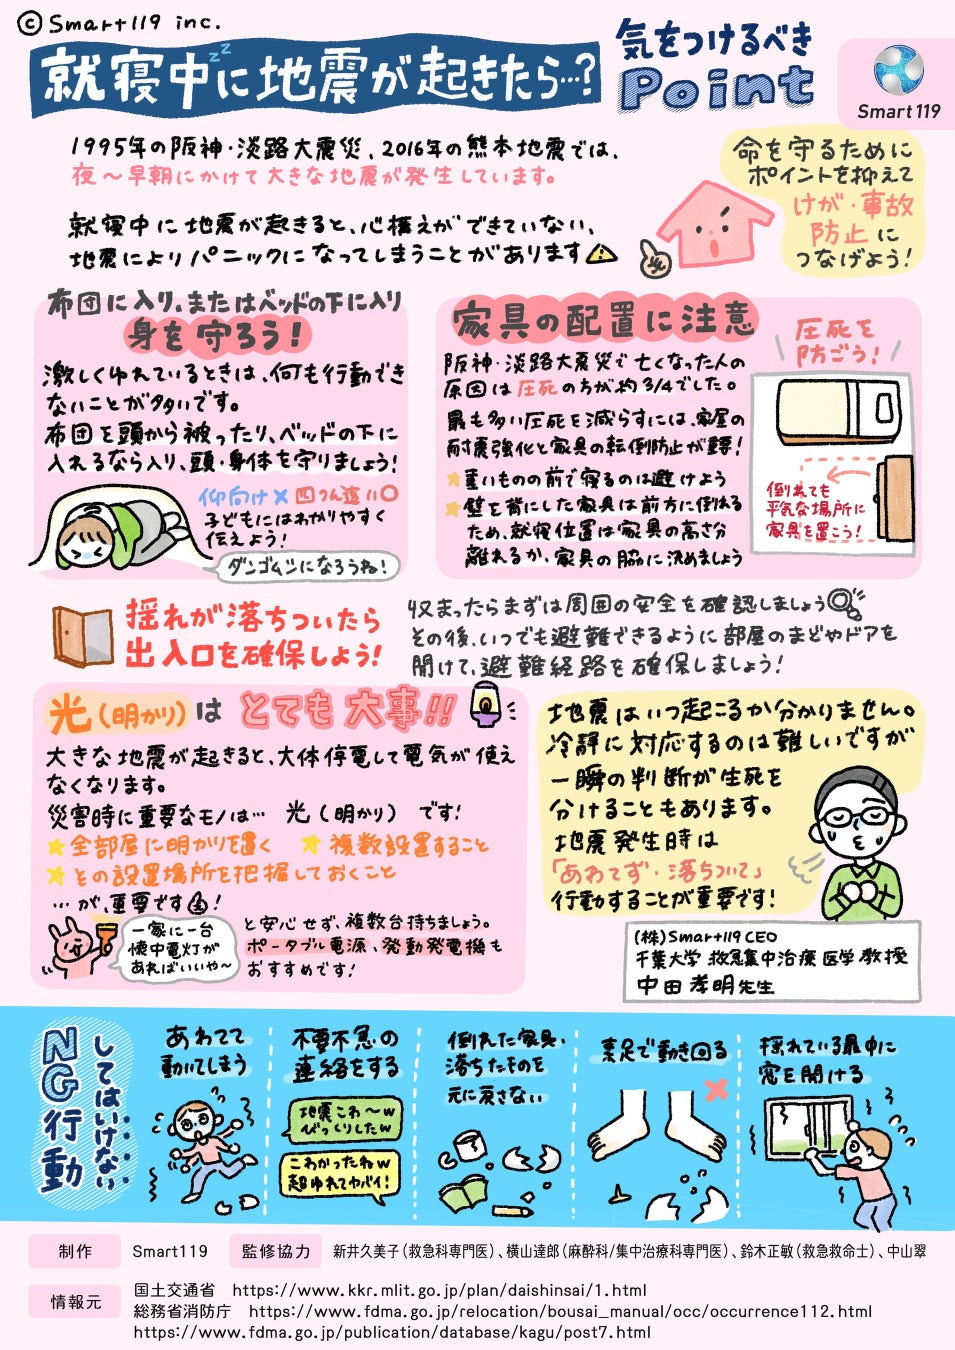 © Smart119 inc.
就寝中に地震が起きたら…?
zzz
気をつけるべき
Point
Smart119
1995年の阪神・淡路大震災、2016年の熊本地震では、
夜〜早朝にかけて大きな地震が発生しています。
就寝中に地震が起きると、心構えができていない、
地震によりパニックになってしまうことがあります
命を守るために
ポイントを抑えて
けが・事故
防止に
つなげよう!
布団に入り、またはベッドの下に入り
身を守ろう!
激しくゆれているときは、何も行動でき
ないことが多いです。
布団を頭から被ったり、ベッドの下に
入れるなら入り、頭・身体を守りましょう!
仰向け× 四つん這い○
子どもにはわかりやすく
伝えよう!
ダンゴムシになろうね!
家具の配置に注意
阪神・淡路大震災で亡くなった人の
原因は圧死の方が約3/4でした。
最も多い圧死を減らすには、家屋の
耐震強化と家具の転倒防止が重要!
重いものの前で寝るのは避けよう
壁を背にした家具は前方に倒れる
ため、就寝位置は家具の高さ分
離れるか、家具の脇に決めましょう
圧死を
防ごう!
倒れても
平気な場所に
家具を置こう!
揺れが落ちついたら
出入口を確保しよう!
収まったらまずは周囲の安全を確認しましょう
その後、いつでも避難できるように部屋のまどやドアを
開けて、避難経路を確保しましょう!
光(明かり)はとても大事!!
大きな地震が起きると、大体停電して電気が使え
なくなります。
災害時に重要なモノは… 光(明かり)です!
全部屋に明かりを置く 複数設置すること
その設置場所を把握しておくこと
…が、重要です!
一家に一台
懐中電灯が
あればいいや〜
と安心せず、複数台持ちましょう。
ポータブル電源、発動発電機も
おすすめです!
地震はいつ起こるか分かりません。
冷静に対応するのは難しいですが
一瞬の判断が生死を
分けることもあります。
地震発生時は
「あわてず・落ちついて」
行動することが重要です!
(株)Smart119 CEO
千葉大学 救急集中治療医学 教授
中田孝明先生
してはいけない
NG行動
あわてて
動いてしまう
不要不急の
連絡をする
地震こわ〜w
びっくりしたw
こわかったねw
超ゆれてヤバイ!
倒れた家具、
落ちたものを
元に戻さない
素足で動き回る
揺れている最中に
窓を開ける
制作 Smart119 監修協力 新井久美子(救急科専門医)、横山達郎(麻酔科/集中治療科専門医)、鈴木正敏(救急救命士)、中山翠
情報元
国土交通省 https://www.kkr.mlit.go.jp/plan/daishinsai/1.html
総務省消防庁 https://www.fdma.go.jp/relocation/bousai_manual/occ/occurrence112.html
https://www.fdma.go.jp/publication/database/kagu/post7.html